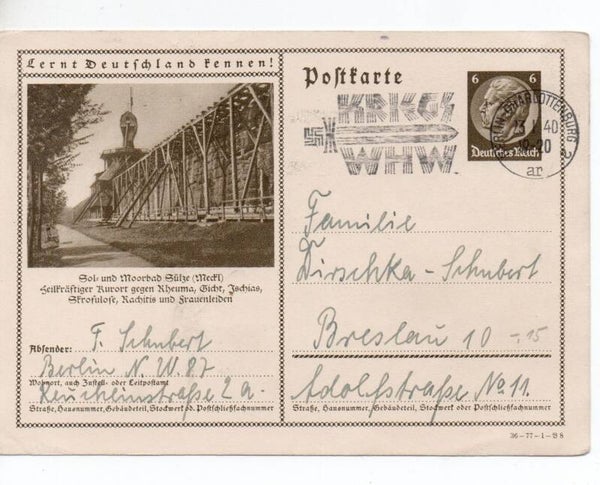 Lernt Deutschland kennen!
Sol- und Moorbad Sülze (Meckl)
Heilkräftiger Kurort gegen Rheuma, Gicht, Ischias,
Skrofulose, Rachitis und Frauenleiden
Absender: F. Schubert
Berlin N.W. 87
Wohnort, auch Zustell- oder Leitpostamt
Reuchlinstraße 2a.
Straße, Hausnummer, Gebäudeteil, Stockwerk od. Postschließfachnummer
Postkarte
6 6
Deutsches Reich
KRIEGS
WHW
BERLIN-CHARLOTTENBURG 2
40
20
ar
Familie
Dirschka-Schubert
Breslau 10 -.15
Adolfstraße No 11.
Straße, Hausnummer, Gebäudeteil, Stockwerk oder Postschließfachnummer
36-77-1-B8